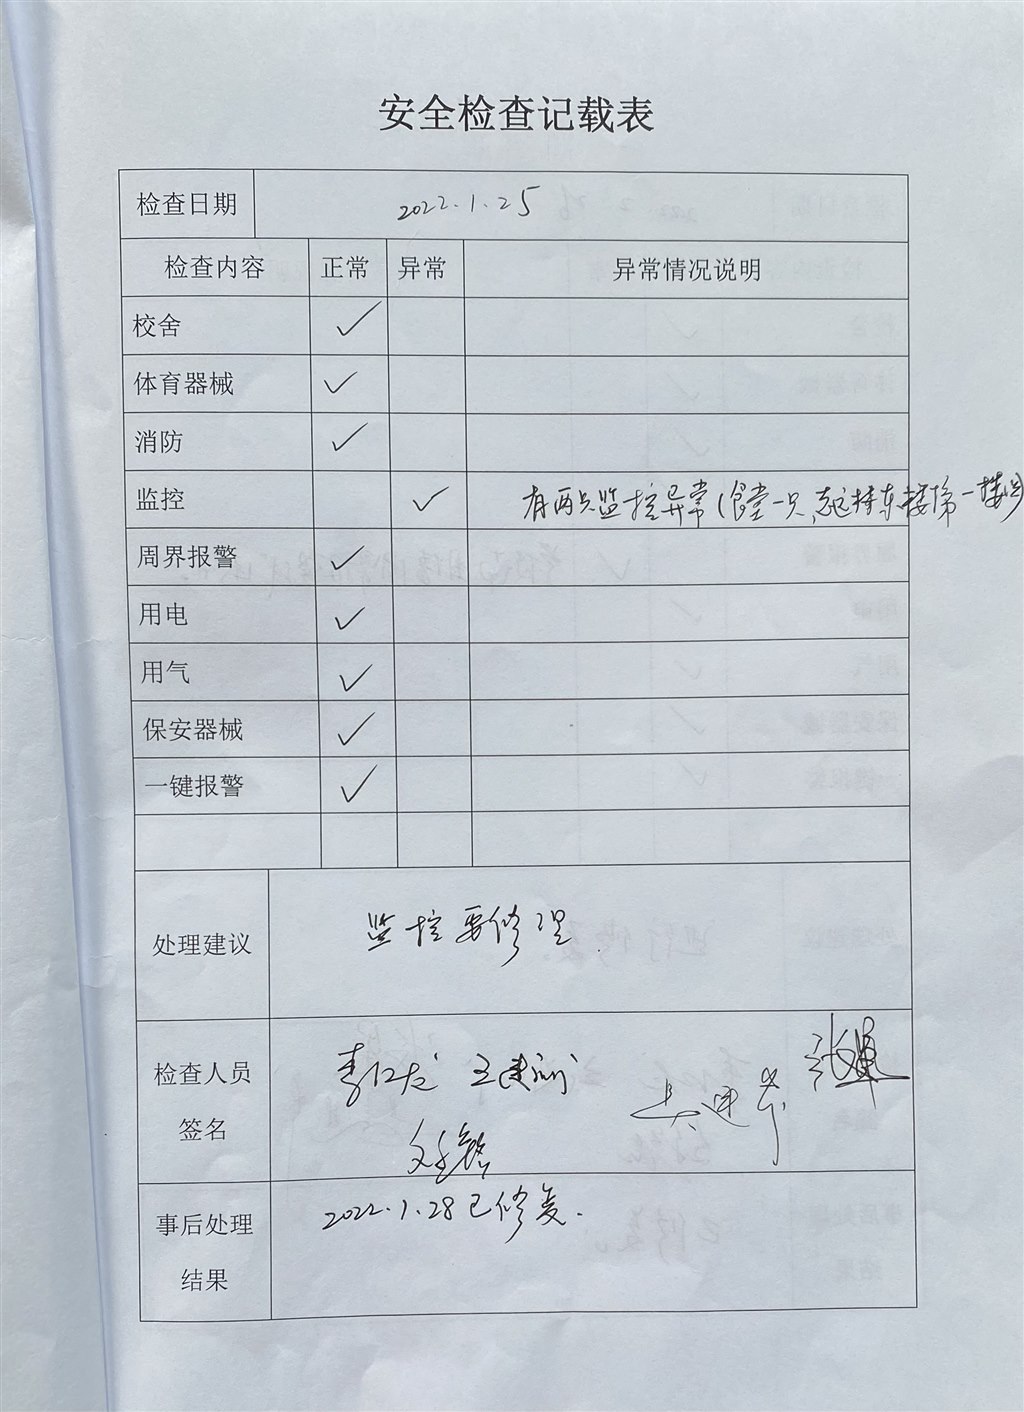 安全检查记载表
检查日期 2022.1.25
检查内容 正常 异常 异常情况说明
校舍 ✓
体育器械 ✓
消防 ✓
监控 ✓ 有两只监控异常(食堂一只、
周界报警 ✓
用电 ✓
用气 ✓
保安器械 ✓
一键报警 ✓
处理建议 监控要修理
检查人员
签名
事后处理 2022.1.28已修复.
结果